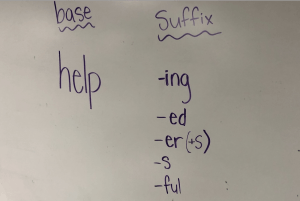 base suffix
help -ing
-ed
-er(+s)
-s
-ful